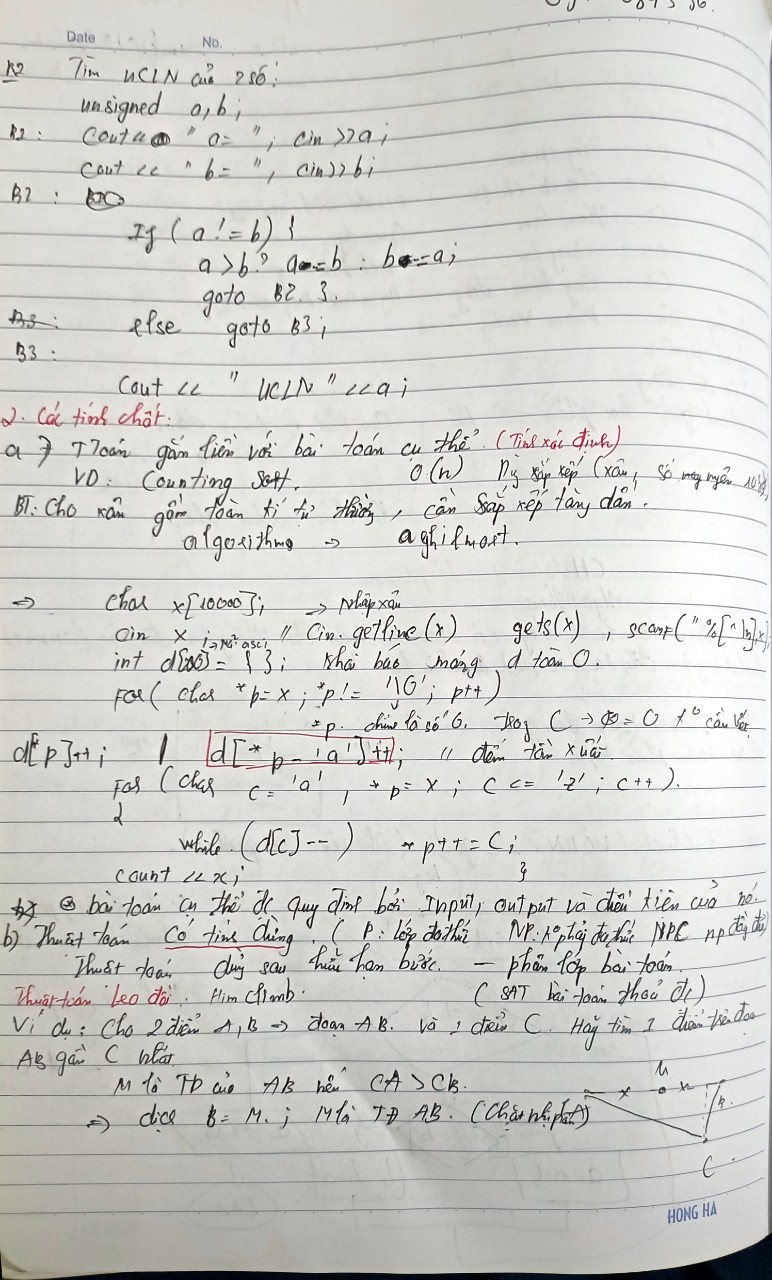 Date No.
B2 Tìm UCLN của 2 số:
unsigned a, b;
B1: Cout << " a = "; cin >> a;
Cout << " b = ", cin >> b;
B2:
If ( a != b) {
a > b ? a -= b : b -= a;
goto B2 }.
B3: else goto B3;
B3:
Cout << " UCLN " << a;
2. Các tính chất:
a) TToán gắn liền với bài toán cụ thể. (Tính xác định)
VD: Counting sort. O(n) sắp xếp (xâu, số nguyên
BT: Cho xâu gồm toàn kí tự thường, cần sắp xếp tăng dần.
algorithm → aghilmort.
⇒ Char x[10000]; → Nhập xâu
Cin x ; // Cin.getline(x) gets(x), scanf("%[^\n]",x)
int d[ ] = { }; khai báo mảng d toàn 0.
For( Char *p = x ; *p != '\0'; p++)
*p. chính là số 0. trong C → = 0 ko cần viết
d[*p]++; | d[*p - 'a']++; // đếm tần xuất
For (Char c = 'a', *p = x ; C <= 'z' ; c++).
{
while (d[c]--) *p++ = C;
}
Count << x;
bài toán cụ thể đc quy định bởi Input, output và điều kiện của nó.
b) Thuật toán Có tính dừng. ( P: lớp đa thức NP: ko phải đa thức NPC np đầy đủ)
Thuật toán dừng sau hữu hạn bước. - phân lớp bài toán.
Thuật toán leo đồi. Him Climb. ( SAT bài toán thoả đc)
Ví dụ: Cho 2 điểm A, B → đoạn AB. và 1 điểm C. Hãy tìm 1 điểm trên đoạn
AB gần C nhất.
M là TĐ của AB nếu CA > CB.
⇒ dịch B = M. ; M là TĐ AB. (Chặt nhị phân)
M
x x
C
HONG HA